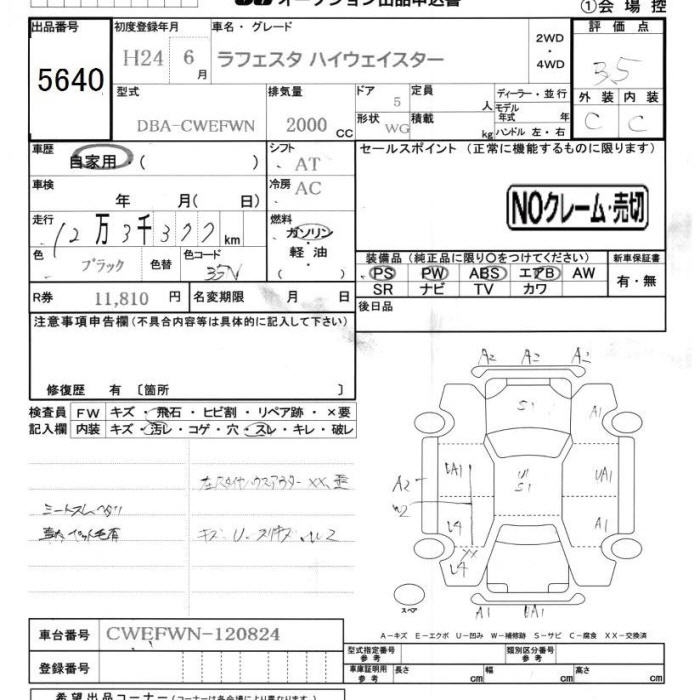 オークション出品申込書
①会場控
出品番号 5640
初度登録年月 H24 6月
車名・グレード ラフェスタ ハイウェイスター
2WD・4WD
評価点 3.5
外装 C 内装 C
型式 DBA-CWEFWN
排気量 2000 CC
ドア 5
形状 WG
定員 人
積載 kg
ディーラー・並行
モデル年式 年
ハンドル 左・右
車歴 自家用・( )
シフト AT
車検 年 月( 日)
冷房 AC
走行 12万3千377km
燃料 ガソリン・軽油・( )
色 ブラック 色替 色コード 35N
R券 11,810 円 名変期限 月 日
セールスポイント (正常に機能するものに限ります)
NOクレーム・売切
装備品 (純正品に限り〇をつけてください)
PS PW ABS エアB AW
SR ナビ TV カワ
新車保証書 有・無
後日品
注意事項申告欄(不具合内容等は具体的に記入して下さい)
修復歴 有 〔箇所 〕
検査員記入欄
FW キズ・飛石・ヒビ割・リペア跡・×要
内装 キズ・汚レ・コゲ・穴・スレ・キレ・破レ
A2 A2 A2
S1
A1
UA1
U1
S1
UA1
A2
W2
L4
A1
XX
L4
スペア
A1 UA1
A-キズ E-エクボ U-凹み W-補修跡 S-サビ C-腐食 XX-交換済
車台番号 CWEFWN-120824
登録番号
型式指定番号 参考
類別区分番号 参考
車庫証明用 参考 長さ cm 幅 cm 高さ cm
希望出品コーナー(コーナーは各会場により異なります)